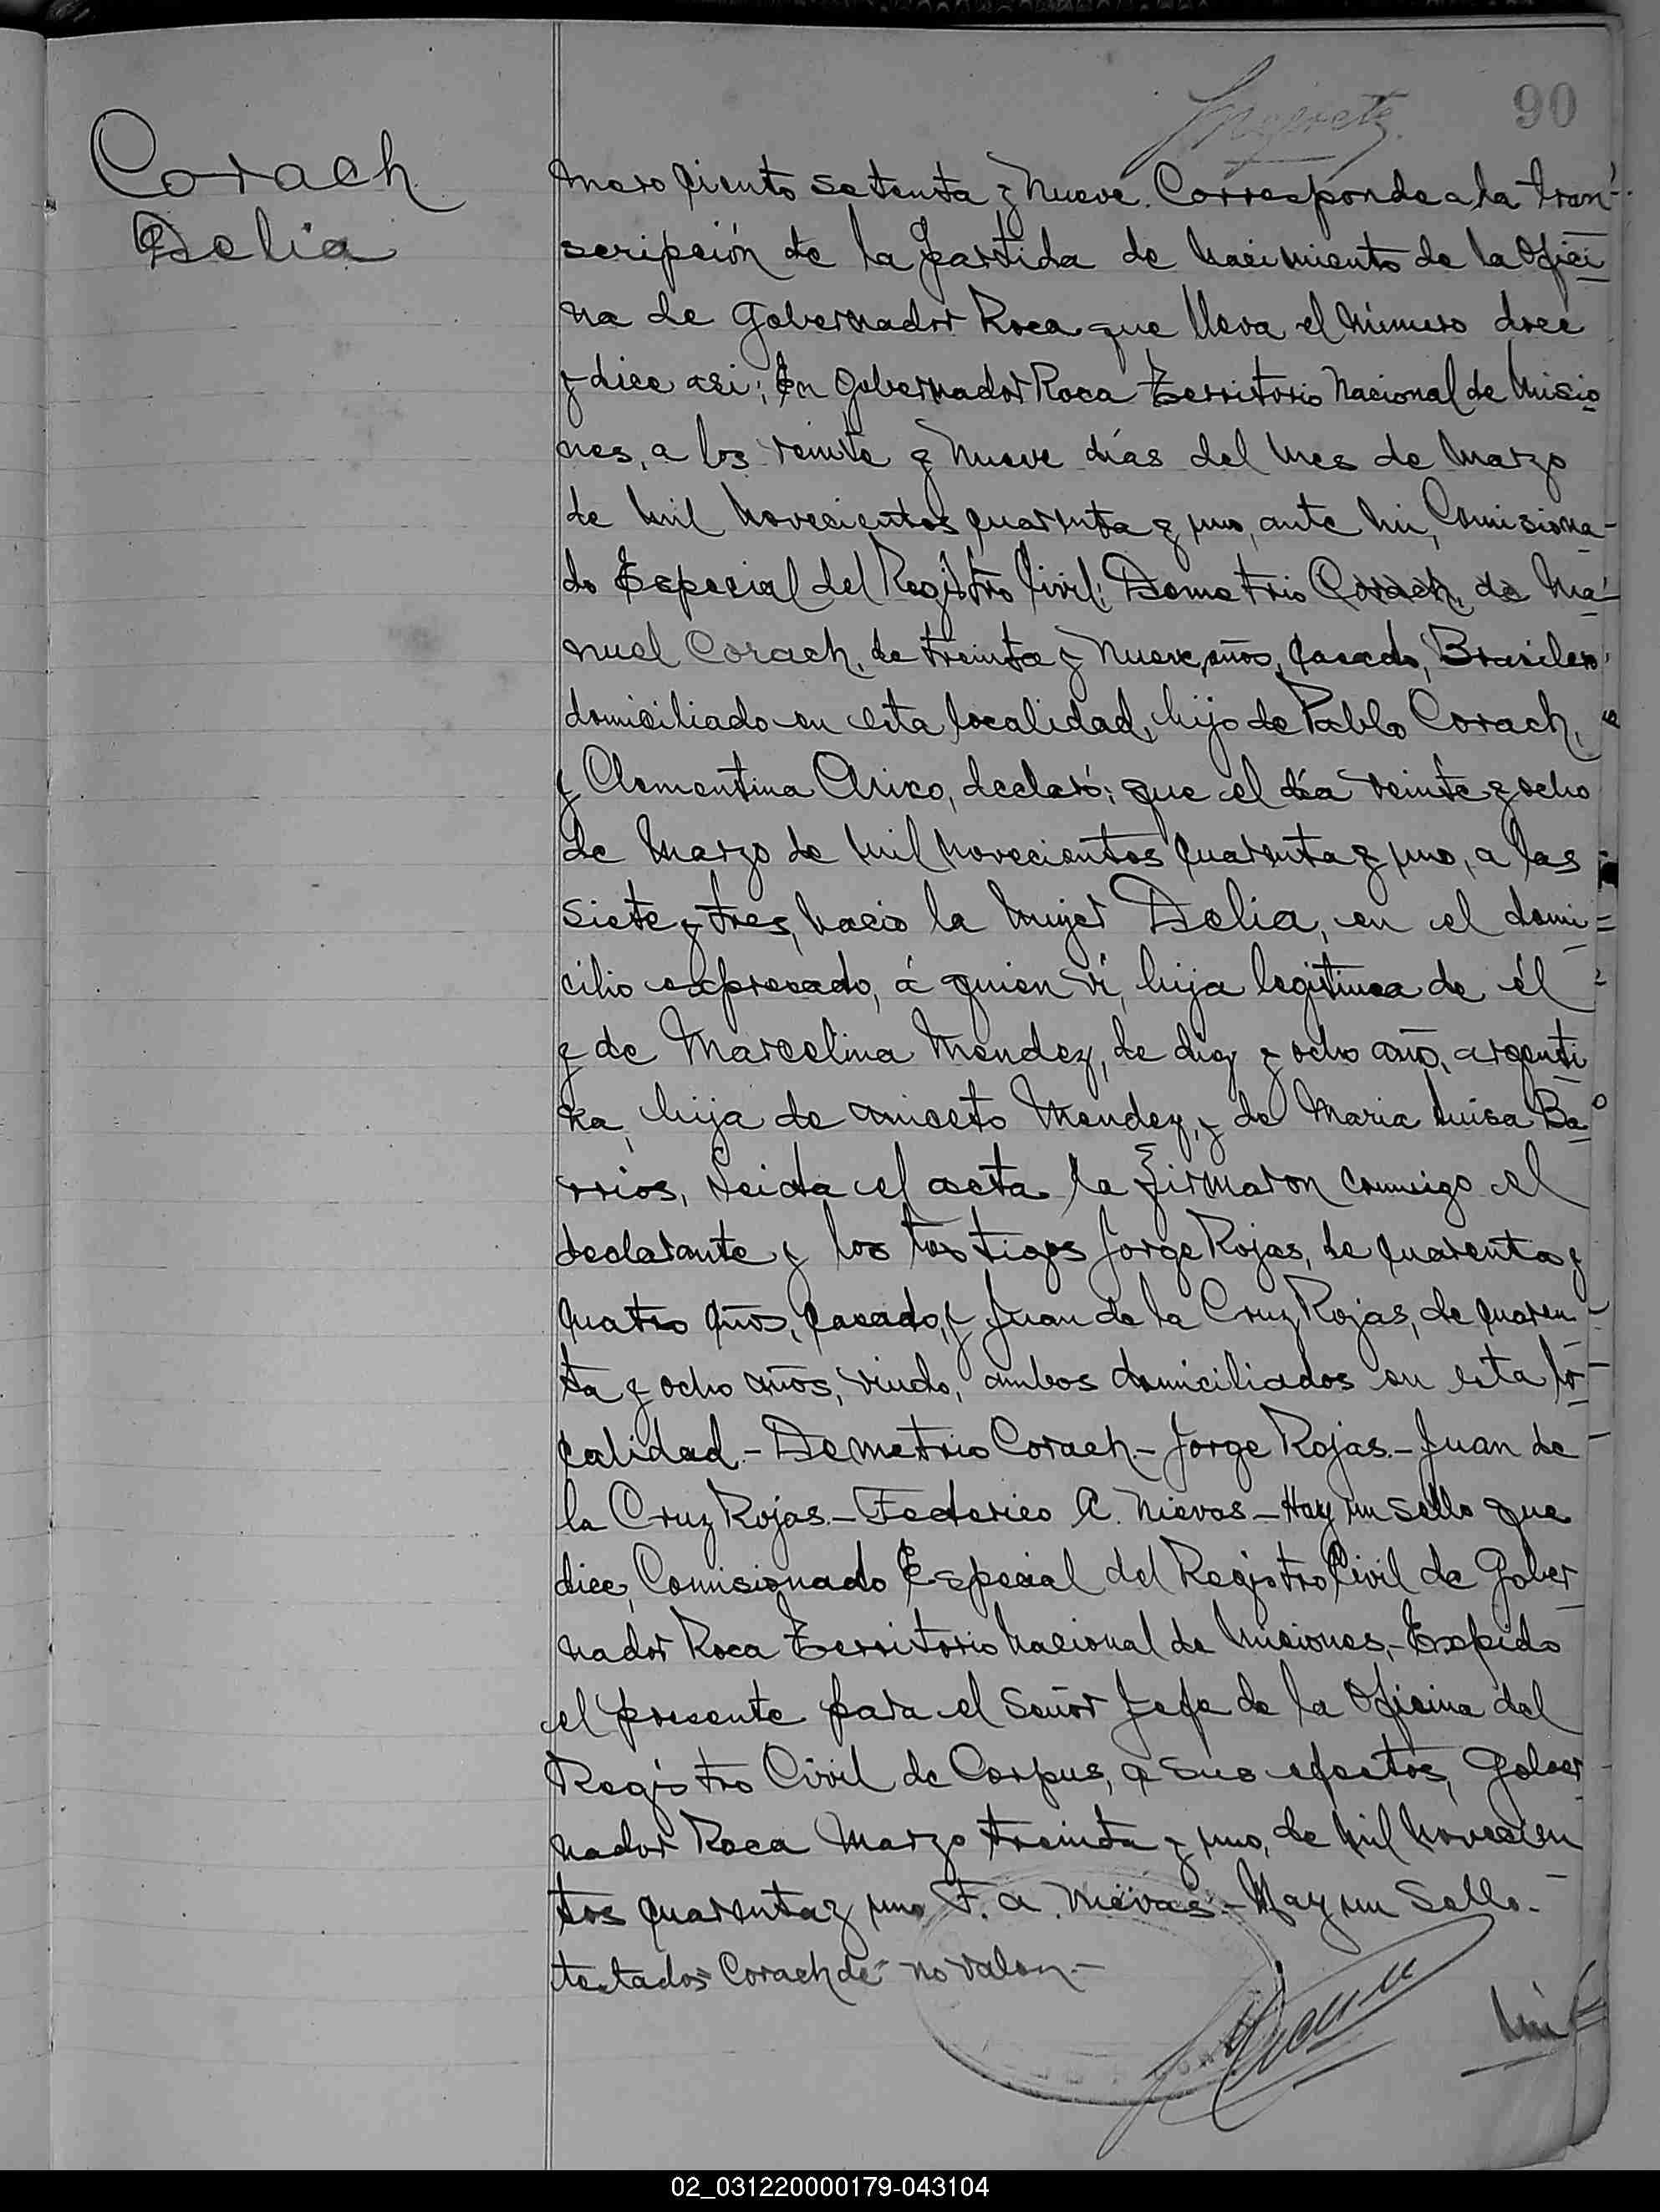 90
Corach
Delia
mero ciento setenta y nueve. Corresponde a la tran-
scripción de la partida de nacimiento de la Ofici
na de Gobernador Roca que lleva el número doce
y dice asi: En Gobernador Roca Territorio Nacional de Misio
nes, a los veinte y nueve días del mes de Marzo
de mil novecientos cuarenta y uno, ante mi, Comisiona-
do Especial del Registro Civil; Demetrio Corach, de Ma-
nuel Corach, de treinta y nueve años, casado, Brasilero,
domiciliado en esta localidad, hijo de Pablo Corach,
y Clementina declaró; que el día veinte y ocho
de Marzo de mil novecientos cuarenta y uno, a las
siete y tres, nacio la mujer Delia, en el domi-
cilio expresado, á quien ví, hija legitima de él
y de Marcelina Mendez, de diez y ocho año, argenti
na, hija de Aniceto Mendez, y de Maria Luisa Ba
rrios, Leida el acta la firmaron conmigo el
declarante y los testigos Jorge Rojas, de cuarenta y
cuatro años, casado, y Juan de la Cruz Rojas, de cuaren-
ta y ocho años, viudo, ambos domiciliados en esta lo-
calidad.- Demetrio Corach- Jorge Rojas.- Juan de
la Cruz Rojas.- Federico A. Nievas- Hay un sello que
dice, Comisionado Especial del Registro Civil de Gober
nador Roca Territorio Nacional de Misiones,- Expido
el presente para el Señor Jefe de la Oficina del
Registro Civil de Corpus, a sus efectos, Gober
nador Roca Marzo treinta y uno, de mil novecien
tos cuarenta y uno F. A. Nievas.- Hay un Sello.-
testados Corach de- no valen-
02_031220000179-043104